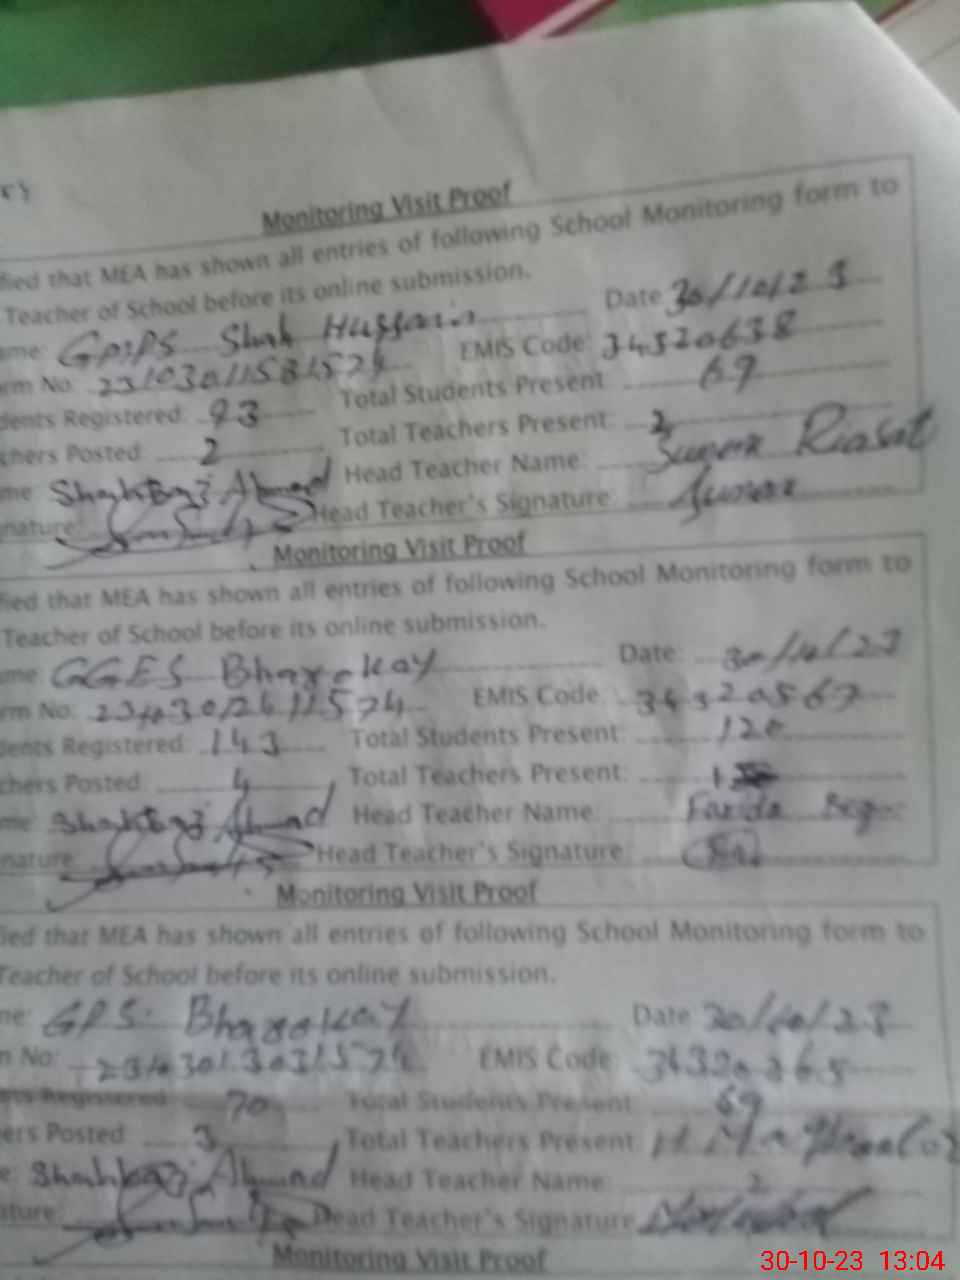 Monitoring Visit Proof
fied that MEA has shown all entries of following School Monitoring form to
Teacher of School before its online submission.
Date 30/10/23
ame: Shah Hussain
EMIS Code: 34520638
rm No:
Total Students Present 69
dents Registered: 93
Total Teachers Present: 2
chers Posted 2
Head Teacher Name: Riasat
me Ahmad
Head Teacher's Signature:
nature:
Monitoring Visit Proof
fied that MEA has shown all entries of following School Monitoring form to
Teacher of School before its online submission.
ame GGES Bharokay Date: 30/10/23
rm No: EMIS Code: 34320567
dents Registered: 143 Total Students Present: 120
chers Posted 4 Total Teachers Present:
me Ahmad Head Teacher Name: Farida
nature Head Teacher's Signature:
Monitoring Visit Proof
ied that MEA has shown all entries of following School Monitoring form to
Teacher of School before its online submission.
ne: GPS Bharokay Date 30/10/23
n No: EMIS Code
nts Registered 70 Total Students Present 69
ers Posted 3 Total Teachers Present
e Shahbaz Ahmad Head Teacher Name
ature: Head Teacher's Signature
Monitoring Visit Proof
30-10-23 13:04